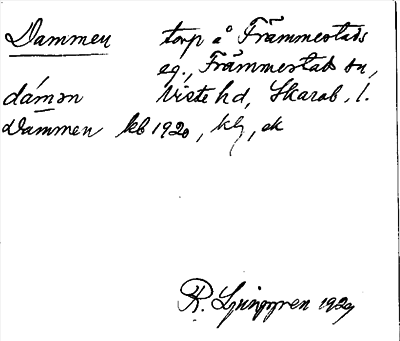 Dammen torp å Främmestads
eg., Främmestads sn,
dámәn Viste hd, Skarab. l.
Dammen kb 1920, klj, ek
R. Ljunggren 1929